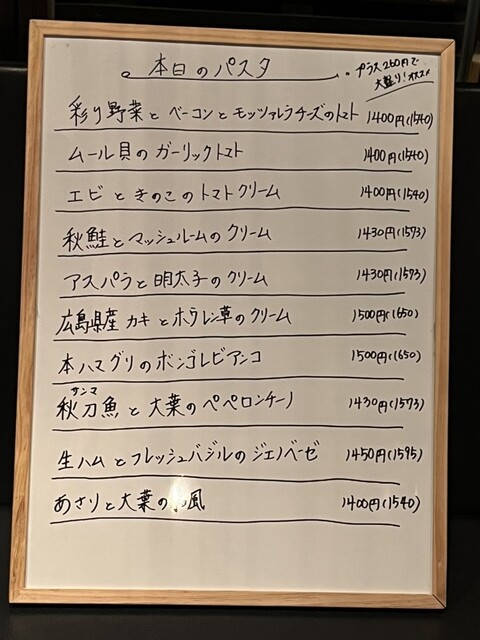 本日のパスタ
プラス250円で
大盛り!オススメ
彩り野菜とベーコンとモッツァレラチーズのトマト 1400円(1540)
ムール貝のガーリックトマト 1400円(1540)
エビときのこのトマトクリーム 1400円(1540)
秋鮭とマッシュルームのクリーム 1430円(1573)
アスパラと明太子のクリーム 1430円(1573)
広島県産カキとホウレン草のクリーム 1500円(1650)
本ハマグリのボンゴレビアンコ 1500円(1650)
サンマ
秋刀魚と大葉のペペロンチーノ 1430円(1573)
生ハムとフレッシュバジルのジェノベーゼ 1450円(1595)
あさりと大葉の風 1400円(1540)